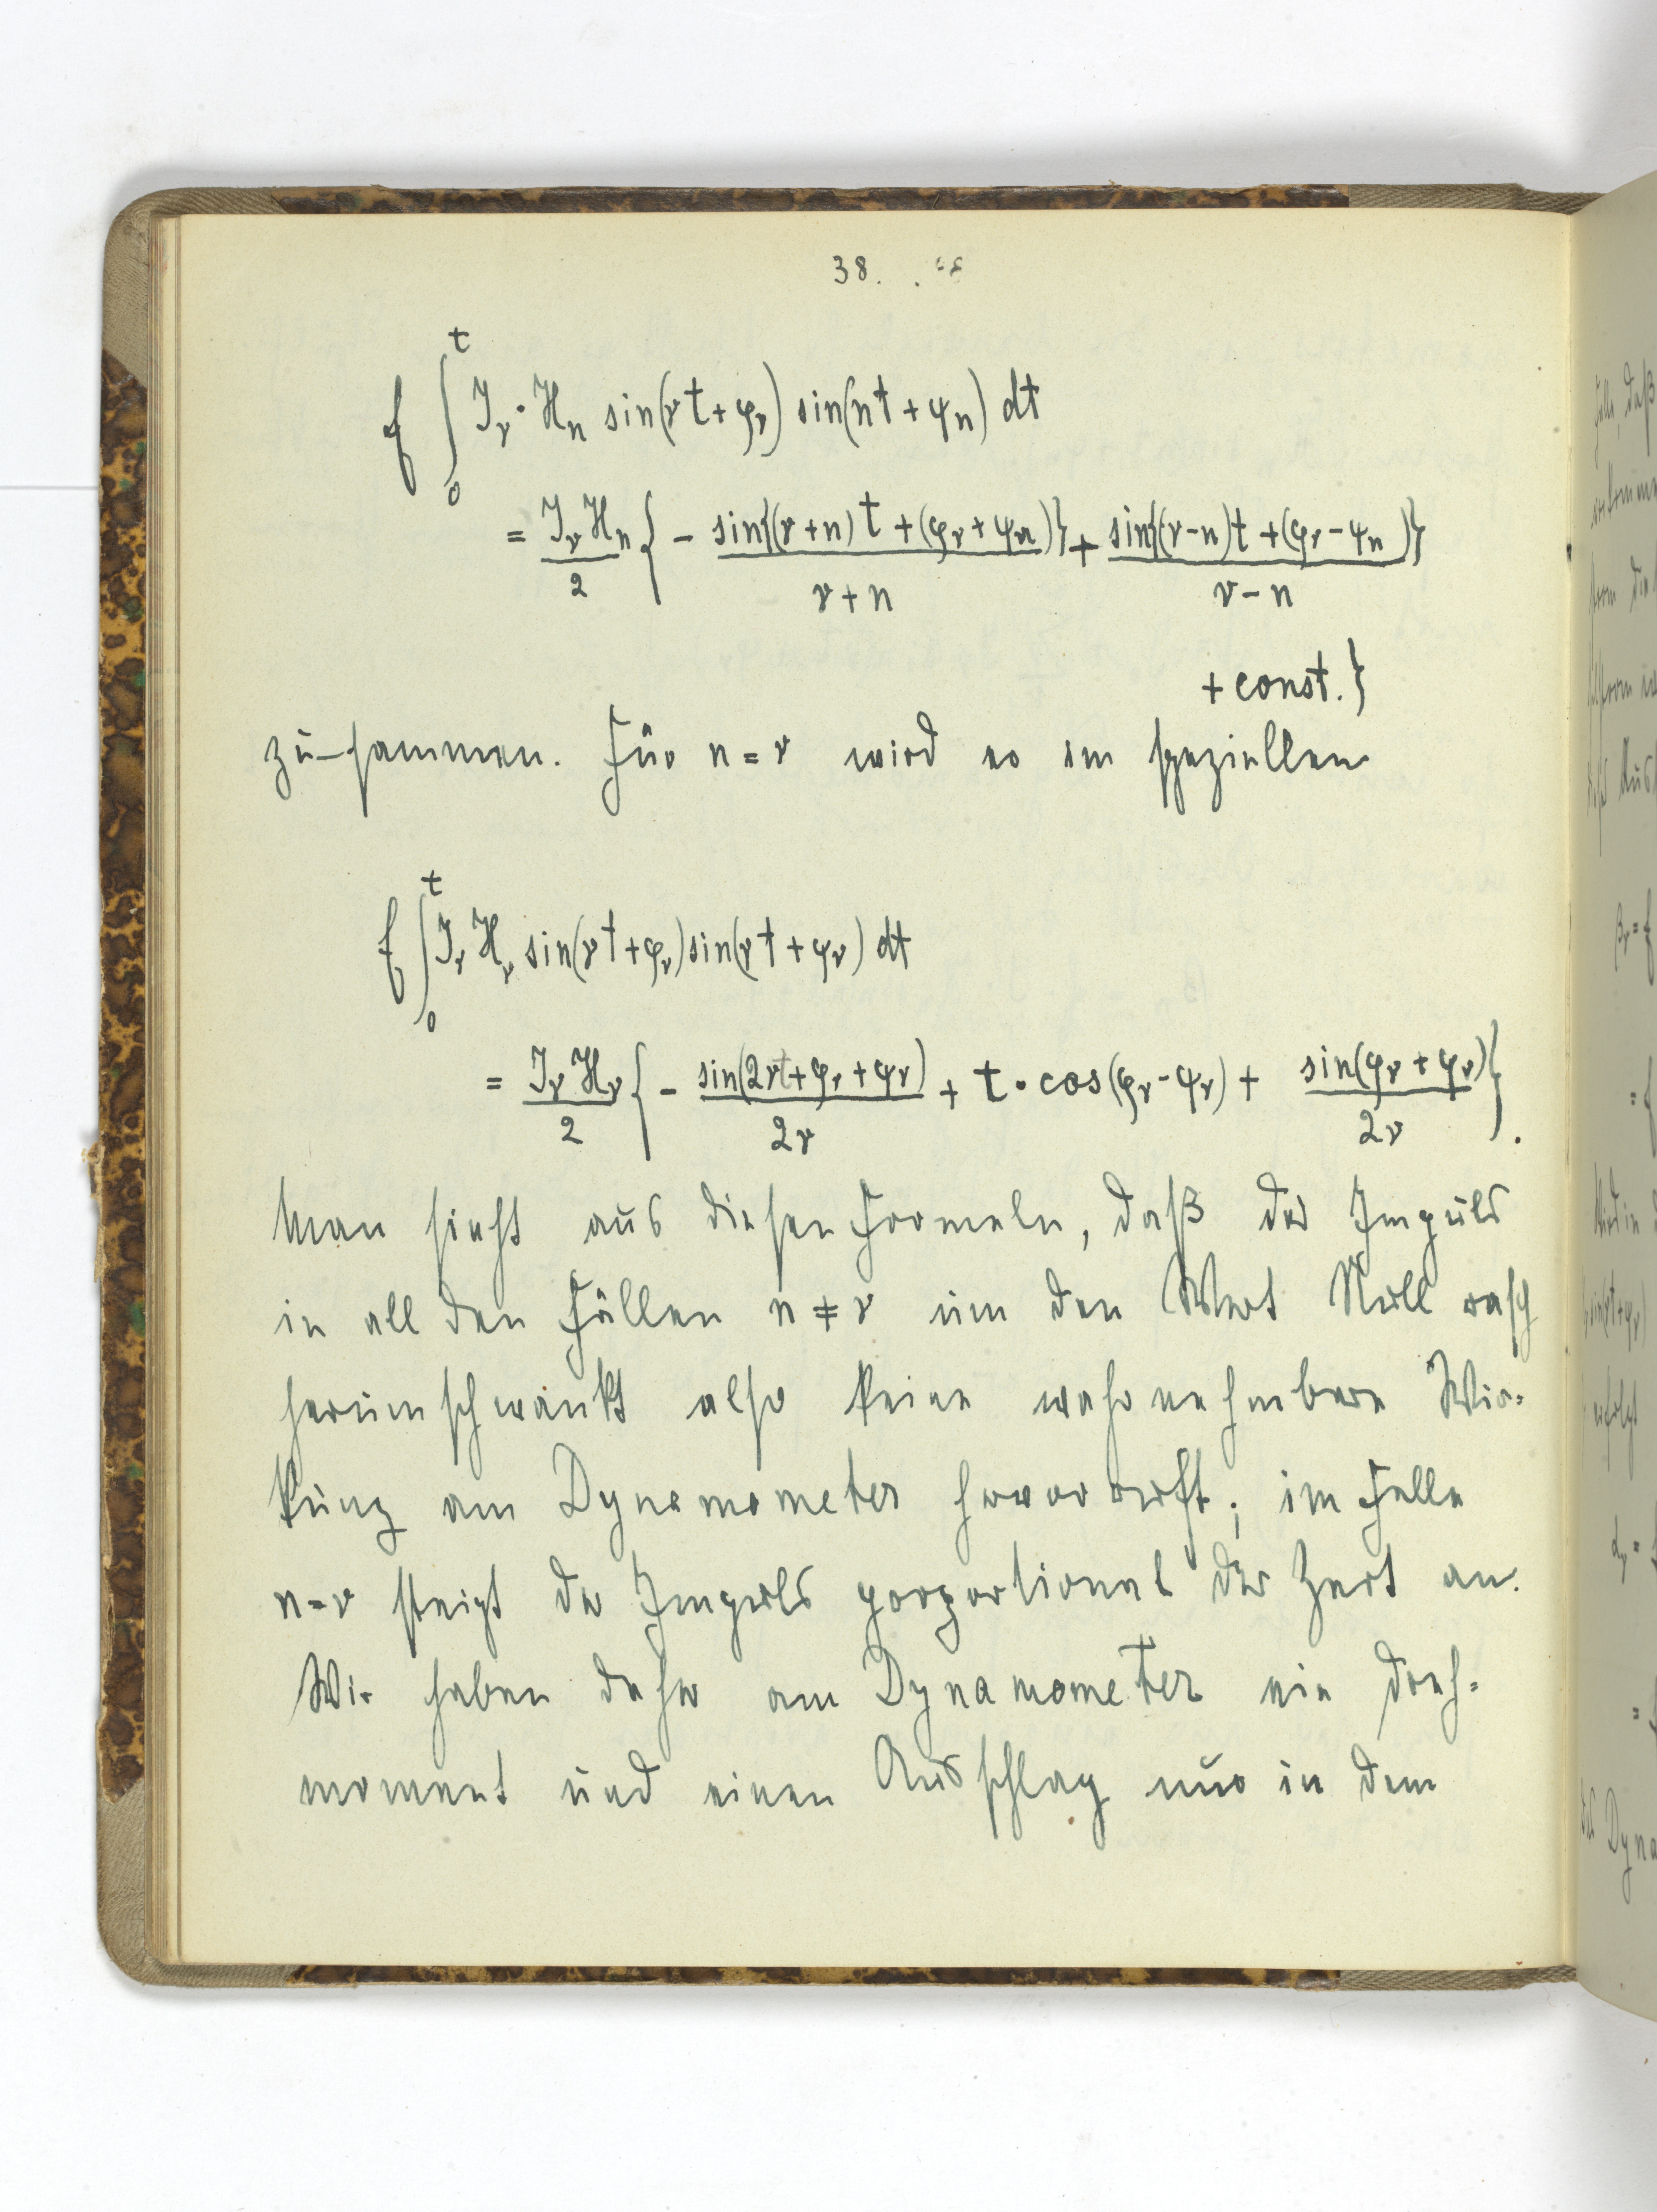 38.
f ∫₀ᵗ J_ν · H_n sin(νt + φ_ν) sin(nt + ψ_n) dt
= J_ν H_n / 2 { - sin{(ν+n)t + (φ_ν + ψ_n)} / (ν+n) + sin{(ν-n)t + (φ_ν - ψ_n)} / (ν-n)
+ const. }
zu-sammen. Für n = ν wird es im speziellen
f ∫₀ᵗ J_ν H_ν sin(νt + φ_ν) sin(νt + ψ_ν) dt
= J_ν H_ν / 2 { - sin(2νt + φ_ν + ψ_ν) / 2ν + t · cos(φ_ν - ψ_ν) + sin(φ_ν + ψ_ν) / 2ν }.
Man sieht aus diesen Formeln, daß der Impuls
in all den Fällen n ≠ ν um den Wert Null rasch
herumschwankt also keine wahrnehmbare Wir=
kung am Dynamometer hervorruft; im Falle
n = ν steigt der Impuls proportional der Zeit an.
Wir haben daher am Dynamometer ein Dreh=
moment und einen Ausschlag nur in dem